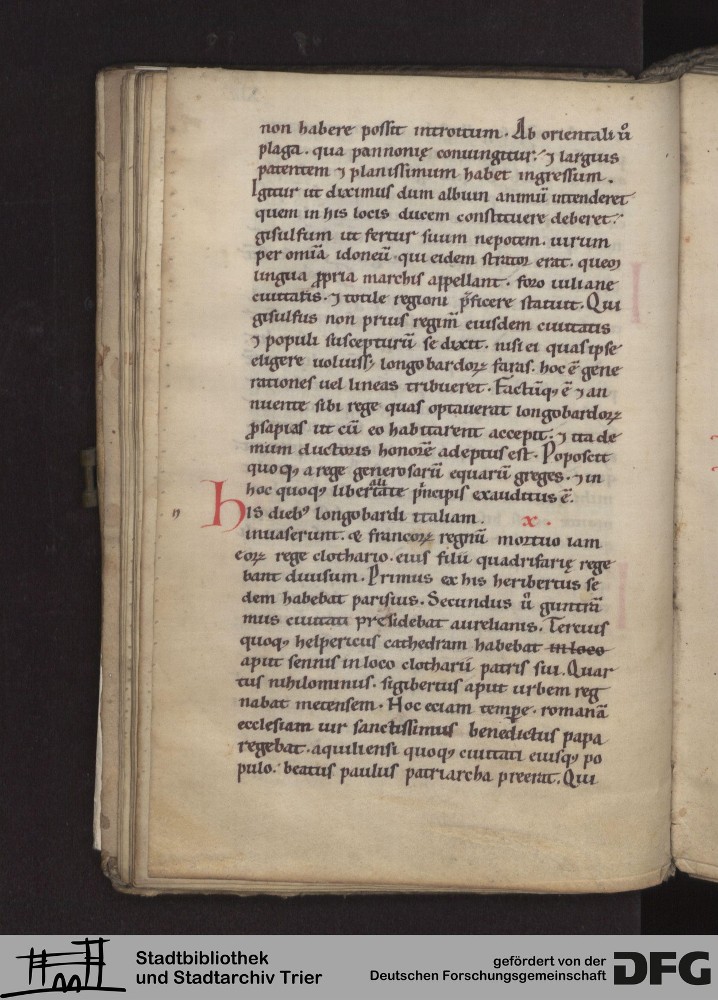 non habere possit introitum. Ab orientali u͛o
plaga. qua pannonię coniungitur. ⁊ largius
patentem ⁊ planissimum habet ingressum.
Igitur ut diximus dum albuin animū intenderet
quem in his locis ducem constituere deberet.
gisulfum ut fertur suum nepotem. uirum
per omīa idoneū qui eidem strator erat. queꝫ
lingua ꝓpria marchis appellant. foro iuliane
ciuitatis. ⁊ totile regioni p̄ficere statuit. Qui
gisulfus non prius regim̄ eiusdem ciuitatis
⁊ populi suscepturū se dixit. nisi ei quas ipse
eligere uoluiss; longobardoꝝ faras. hoc ē gene
rationes uel lineas tribueret. Factūq; ē ⁊ an
nuente sibi rege quas optauerat longobardoꝝ
ꝓsapias ut cū eo habitarent accepit. ⁊ ita de
mum ductoris honorē adeptus est. Poposcit
quoq; a rege generosarū equarū greges. ⁊ in
hoc quoq; libertate p̄ncipis exauditus ē.
his dieb; longobardi italiam. x.
inuaserunt. & francoꝝ regnū mortuo iam
eoꝝ rege clothario. eius filii quadrifarię rege
bant diuisum. Primus ex his heribertus se
dem habebat parisius. Secundus u͛o guntrā
mus ciuitati presidebat aurelianis. Tercius
quoq; helpericus cathedram habebat in loco
aput sennis in loco clotharii patris sui. Quar
tus nihilominus. sigibertus aput urbem reg
nabat metensem. Hoc eciam tempe. romanā
ecclesiam uir sanctissimus benedictus papa
regebat. aquiliensi quoq; ciuitati eiusq; po
pulo. beatus paulus patriarcha preerat. Qui
Stadtbibliothek
und Stadtarchiv Trier
gefördert von der
Deutschen Forschungsgemeinschaft
DFG